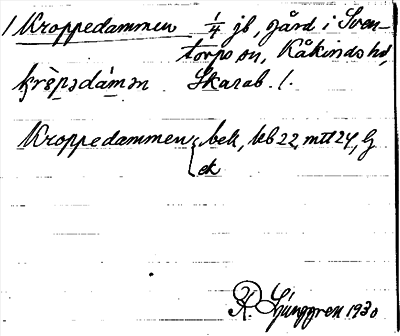 / Kroppedammen 1/4 jb, gård i Sven-
torps sn, Kåkinds hd,
Skarab. l.
Kroppedammen { bek, kb 22, mtl 24, G
ek
R. Ljunggren 1930